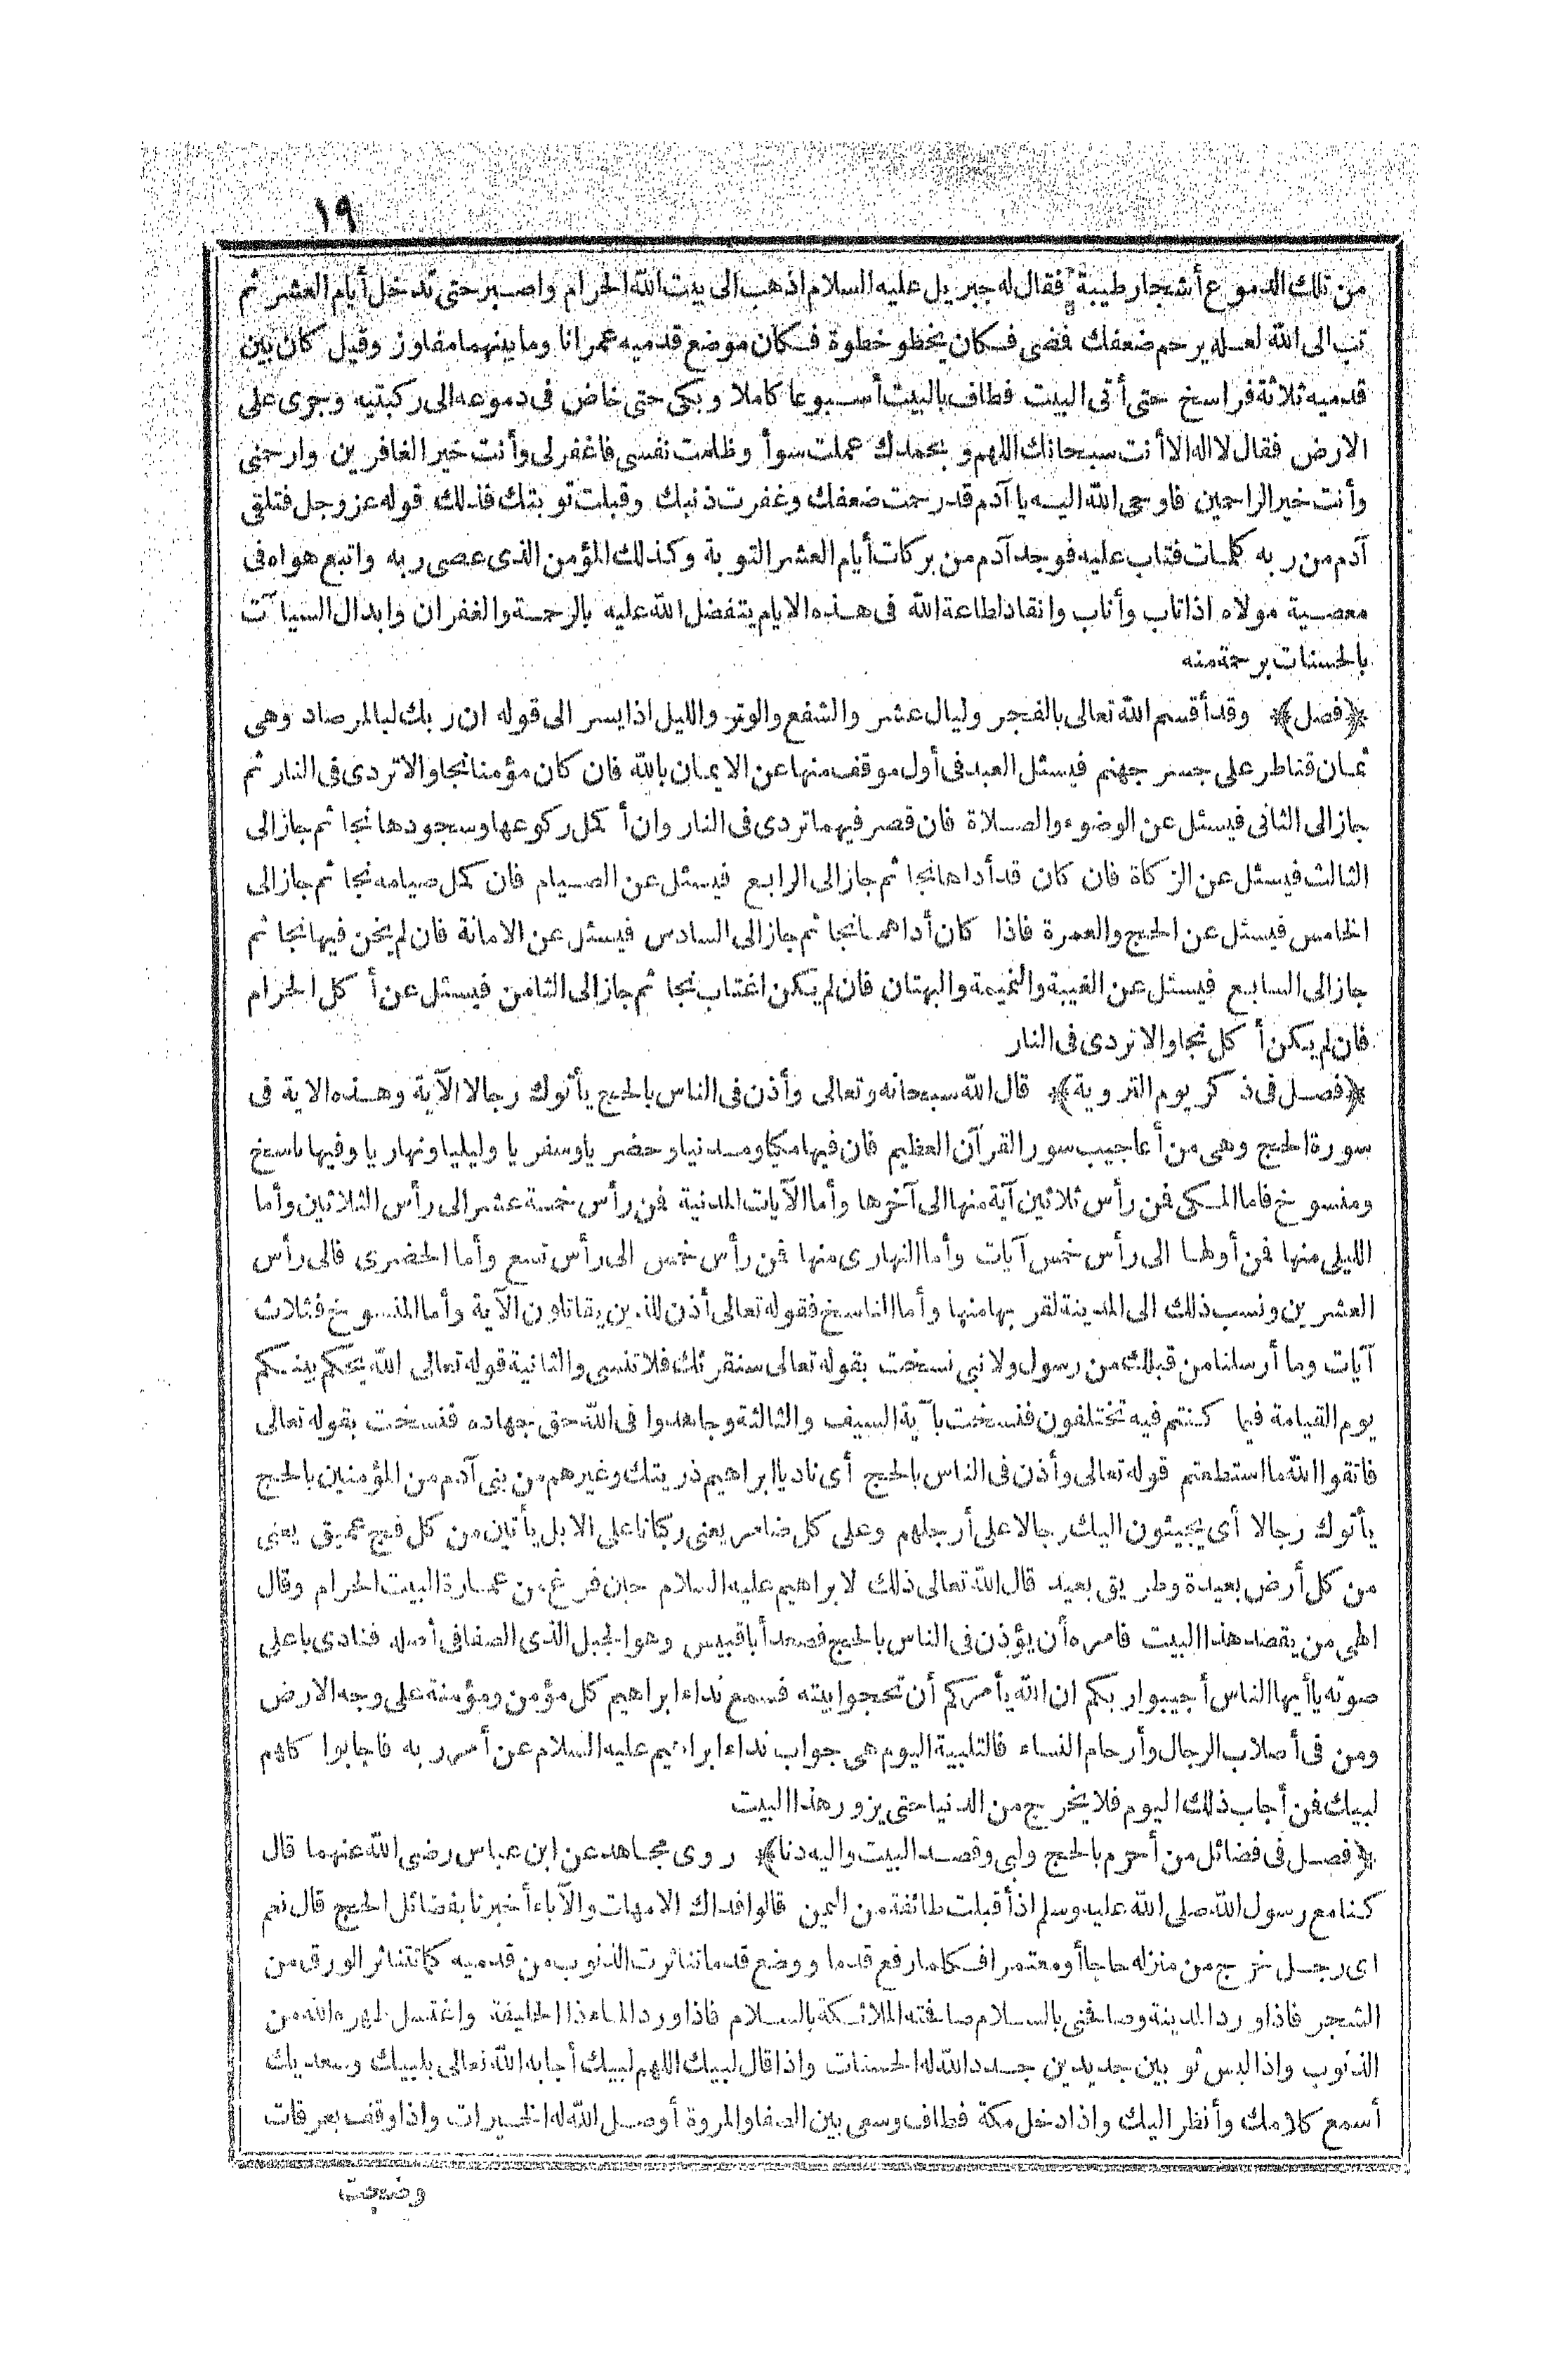 ١٩
من تلك الدموع أشجار طيبة فقال له جبريل عليه السلام اذهب الى بيت الله الحرام واصبر حتى تدخل أيام العشر ثم
تب الى الله لعله يرحم ضعفك فمضى فكان يخطو خطوة فكان موضع قدميه عمرانا وما بينهما مفاوز وقيل كان بين
قدميه ثلاثة فراسخ حتى أتى البيت فطاف بالبيت أسبوعا كاملا وبكى حتى خاض فى دموعه الى ركبتيه وجرى على
الارض فقال لا اله الا أنت سبحانك اللهم وبحمدك عملت سوأ وظلمت نفسى فاغفر لى وأنت خير الغافرين وارحمنى
وأنت خير الراحمين فاوحى الله اليه يا آدم قد رحمت ضعفك وغفرت ذنبك وقبلت توبتك فذلك قوله عز وجل فتلقى
آدم من ربه كلمات فتاب عليه فوجد آدم من بركات أيام العشر التوبة وكذلك المؤمن الذى عصى ربه واتبع هواه فى
معصية مولاه اذا تاب وأناب وانقاد لطاعة الله فى هذه الايام يتفضل الله عليه بالرحمة والغفران وابدال السيآت
بالحسنات برحمة منه
﴿فصل﴾ وقد أقسم الله تعالى بالفجر وليال عشر والشفع والوتر والليل اذا يسر الى قوله ان ربك لبالمرصاد وهى
ثمان قناطر على جسر جهنم فيسئل العبد فى أول موقف منها عن الايمان بالله فان كان مؤمنا نجا والا تردى فى النار ثم
جاز الى الثانى فيسئل عن الوضوء والصلاة فان قصر فيهما تردى فى النار وان أكمل ركوعها وسجودها نجا ثم جاز الى
الثالث فيسئل عن الزكاة فان كان قد أداها نجا ثم جاز الى الرابع فيسئل عن الصيام فان كمل صيامه نجا ثم جاز الى
الخامس فيسئل عن الحج والعمرة فاذا كان أداهما نجا ثم جاز الى السادس فيسئل عن الامانة فان لم يخن فيها نجا ثم
جاز الى السابع فيسئل عن الغيبة والنميمة والبهتان فان لم يكن اغتاب نجا ثم جاز الى الثامن فيسئل عن أكل الحرام
فان لم يكن أكل نجا والا تردى فى النار
﴿فصل فى ذكر يوم التروية﴾ قال الله سبحانه وتعالى وأذن فى الناس بالحج يأتوك رجالا الآية وهذه الاية فى
سورة الحج وهى من أعاجيب سور القرآن العظيم فان فيها مكيا ومدنيا وحضريا وسفريا وليليا ونهاريا وفيها ناسخ
ومنسوخ فاما المكى فمن رأس ثلاثين آية منها الى آخرها وأما الآيات المدنية فمن رأس خمسة عشر الى رأس الثلاثين وأما
الليلى منها فمن أولها الى رأس خمس آيات وأما النهارى منها فمن رأس خمس الى رأس تسع وأما الحضرى فالى رأس
العشرين ونسب ذلك الى المدينة لقربها منها وأما الناسخ فقوله تعالى أذن للذين يقاتلون الآية وأما المنسوخ فثلاث
آيات وما أرسلنا من قبلك من رسول ولا نبى نسخت بقوله تعالى سنقرئك فلا تنسى والثانية قوله تعالى الله يحكم بينكم
يوم القيامة فيما كنتم فيه تختلفون فنسخت بآية السيف والثالثة وجاهدوا فى الله حق جهاده فنسخت بقوله تعالى
فاتقوا الله ما استطعتم قوله تعالى وأذن فى الناس بالحج أى ناد يا ابراهيم ذريتك وغيرهم من بنى آدم من المؤمنين بالحج
يأتوك رجالا أى يجيئون اليك رجالا على أرجلهم وعلى كل ضامر يعنى ركبانا على الابل يأتين من كل فج عميق يعنى
من كل أرض بعيدة وطريق بعيد قال الله تعالى ذلك لابراهيم عليه السلام حين فرغ من عمارة البيت الحرام وقال
الهى من يقصد هذا البيت فامره أن يؤذن فى الناس بالحج فصعد أبا قبيس وهو الجبل الذى الصفا فى أصله فنادى باعلى
صوته يا أيها الناس أجيبوا ربكم ان الله يأمركم أن تحجوا بيته فسمع نداء ابراهيم كل مؤمن ومؤمنة على وجه الارض
ومن فى أصلاب الرجال وأرحام النساء فالتلبية اليوم هى جواب نداء ابراهيم عليه السلام عن أمر ربه فاجابوا كلهم
لبيك فمن أجاب ذلك اليوم فلا يخرج من الدنيا حتى يزور هذا البيت
﴿فصل فى فضائل من أحرم بالحج ولبى وقصد البيت واليه دنا﴾ روى مجاهد عن ابن عباس رضى الله عنهما قال
كنا مع رسول الله صلى الله عليه وسلم اذ أقبلت طائفة من اليمن قالوا فداك الامهات والآباء أخبرنا بفضائل الحج قال نعم
اى رجل خرج من منزله حاجا أو معتمرا فكلما رفع قدما ووضع قدما تناثرت الذنوب من قدميه كما تتناثر الورق من
الشجر فاذا ورد المدينة وصافحنى بالسلام صافحته الملائكة بالسلام فاذا ورد الماء ذا الحليفة واغتسل طهره الله من
الذنوب واذا لبس ثوبين جديدين جدد الله له الحسنات واذا قال لبيك اللهم لبيك أجابه الله تعالى بلبيك وسعديك
أسمع كلامك وأنظر اليك واذا دخل مكة فطاف وسعى بين الصفا والمروة أوصل الله له الخيرات واذا وقف بعرفات
وضجت